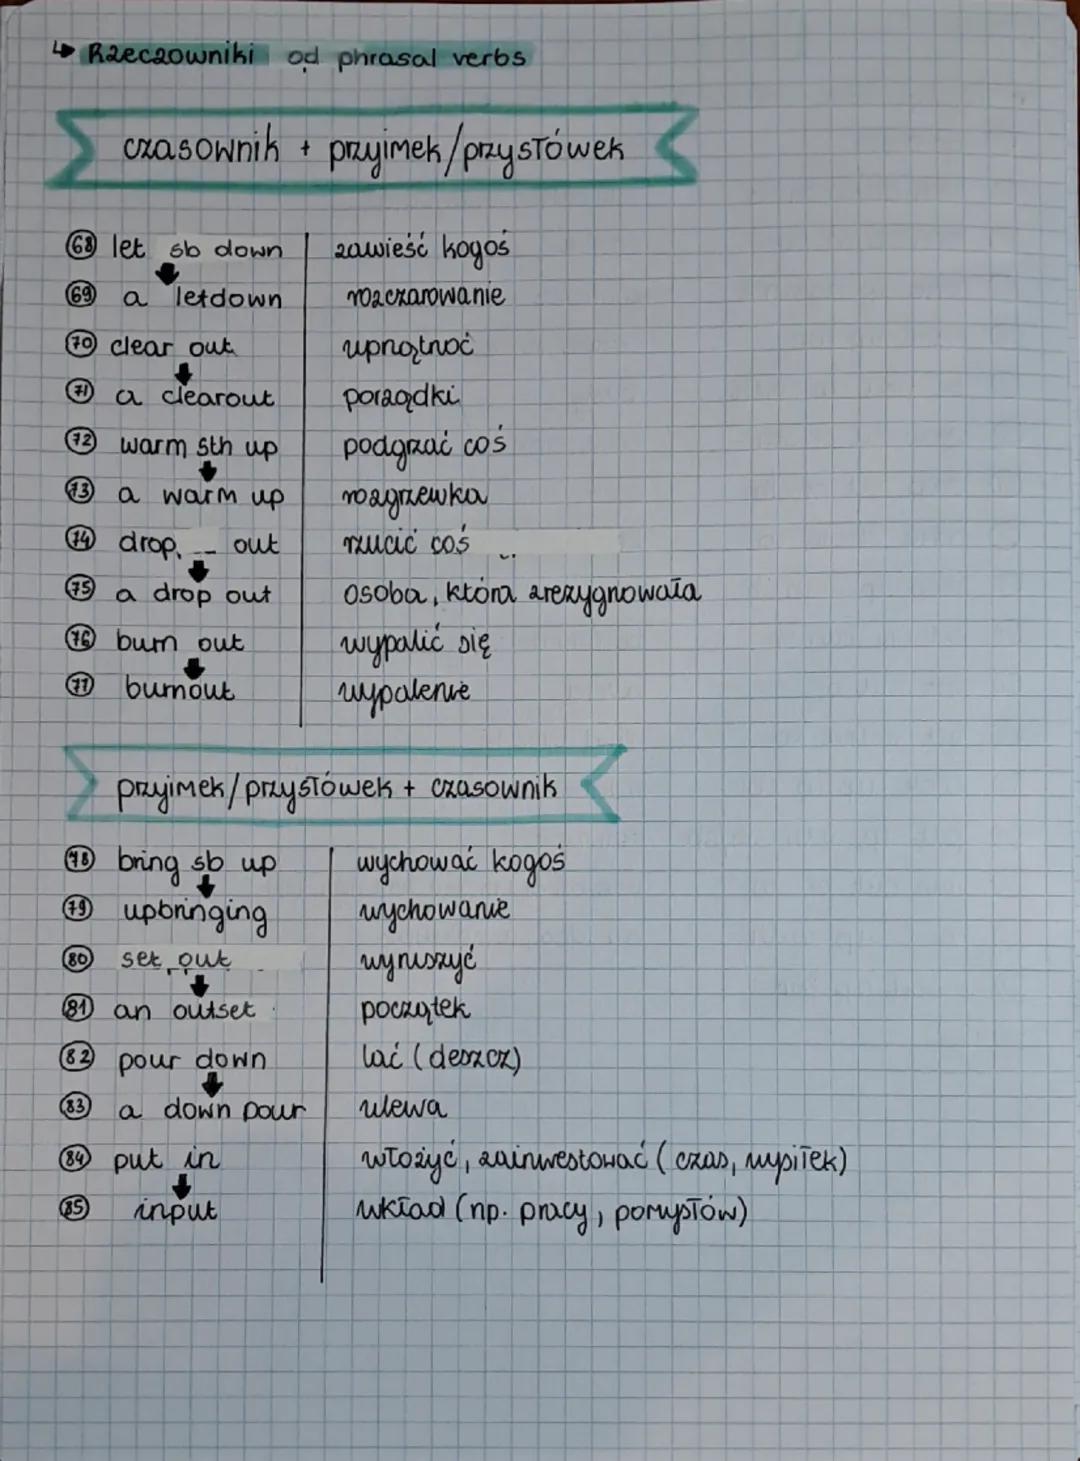 ↳ Rzeczowniki od phrasal verbs
czasownik + przyimek/przysłówek
68 let sb down zawieść kogoś
69 a letdown rozczarowanie
70 clear out uprzątnąć
71 a clearout porządki
72 warm sth up podgrzać coś
73 a warm up rozgrzewka
74 drop out rzucić coś
75 a drop out osoba, która zrezygnowała
76 burn out wypalić się
77 burnout wypalenie
przyimek/przysłówek + czasownik
78 bring sb up wychować kogoś
79 upbringing wychowanie
80 set out wyruszyć
81 an outset początek
82 pour down lać (deszcz)
83 a down pour ulewa
84 put in włożyć, zainwestować (czas, wysiłek)
85 input wkład (np. pracy, pomysłów)